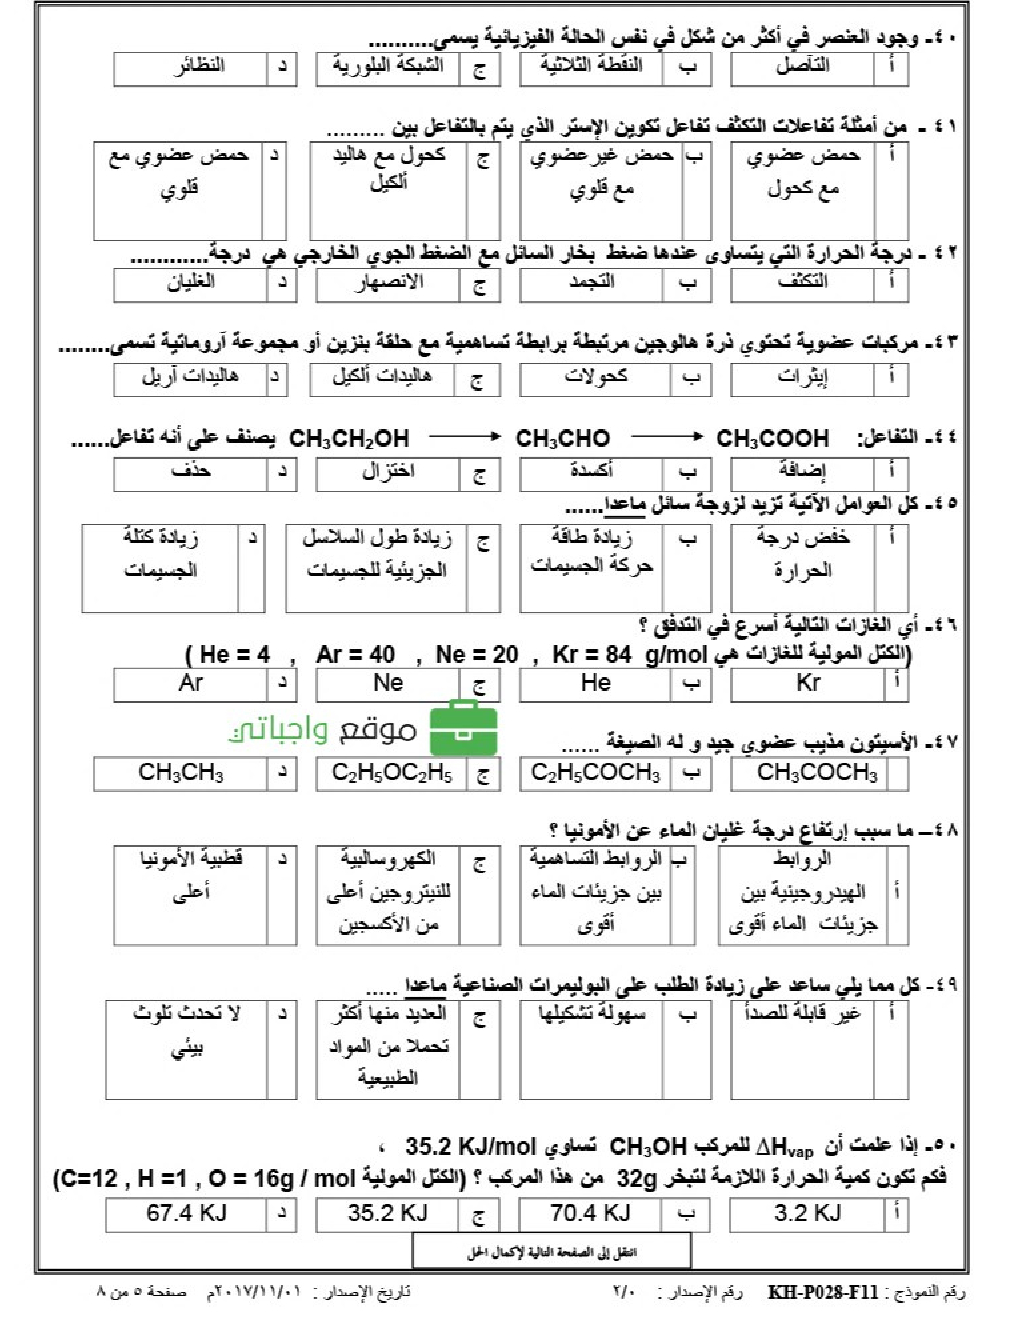 ٤٠- وجود العنصر في أكثر من شكل في نفس الحالة الفيزيائية يسمى..........
أ التآصل ب النقطة الثلاثية ج الشبكة البلورية د النظائر
٤١ - من أمثلة تفاعلات التكثف تفاعل تكوين الإستر الذي يتم بالتفاعل بين .........
أ حمض عضوي ب حمض غير عضوي ج كحول مع هاليد د حمض عضوي مع
مع كحول مع قلوي ألكيل قلوي
٤٢ - درجة الحرارة التي يتساوى عندها ضغط بخار السائل مع الضغط الجوي الخارجي هي درجة............
أ التكثف ب التجمد ج الانصهار د الغليان
٤٣- مركبات عضوية تحتوي ذرة هالوجين مرتبطة برابطة تساهمية مع حلقة بنزين أو مجموعة آروماتية تسمى........
أ إيثرات ب كحولات ج هاليدات ألكيل د هاليدات آريل
٤٤- التفاعل: CH₃CH₂OH ⟶ CH₃CHO ⟶ CH₃COOH يصنف على أنه تفاعل......
أ إضافة ب أكسدة ج اختزال د حذف
٤٥- كل العوامل الآتية تزيد لزوجة سائل ماعدا......
أ خفض درجة ب زيادة طاقة ج زيادة طول السلاسل د زيادة كتلة
الحرارة حركة الجسيمات الجزيئية للجسيمات الجسيمات
٤٦- أي الغازات التالية أسرع في التدفق ؟
(الكتل المولية للغازات هي He = 4 , Ar = 40 , Ne = 20 , Kr = 84 g/mol )
أ Kr ب He ج Ne د Ar
موقع واجباتي
٤٧- الأسيتون مذيب عضوي جيد و له الصيغة ......
CH₃COCH₃ ب C₂H₅COCH₃ ج C₂H₅OC₂H₅ د CH₃CH₃
٤٨– ما سبب إرتفاع درجة غليان الماء عن الأمونيا ؟
الروابط ب الروابط التساهمية ج الكهروسالبية د قطبية الأمونيا
أ الهيدروجينية بين بين جزيئات الماء للنيتروجين أعلى أعلى
جزيئات الماء أقوى أقوى من الأكسجين
٤٩- كل مما يلي ساعد على زيادة الطلب على البوليمرات الصناعية ماعدا .....
أ غير قابلة للصدأ ب سهولة تشكيلها ج العديد منها أكثر د لا تحدث تلوث
تحملا من المواد بيئي
الطبيعية
٥٠- إذا علمت أن ΔHvap للمركب CH₃OH تساوي 35.2 KJ/mol ،
فكم تكون كمية الحرارة اللازمة لتبخر 32g من هذا المركب ؟ (الكتل المولية C=12 , H =1 , O = 16g / mol)
أ 3.2 KJ ب 70.4 KJ ج 35.2 KJ د 67.4 KJ
انتقل إلى الصفحة التالية لإكمال الحل
رقم النموذج : KH-P028-F11 رقم الإصدار : ٢/٠ تاريخ الإصدار : ٢٠١٧/١١/٠١م صفحة ٥ من ٨